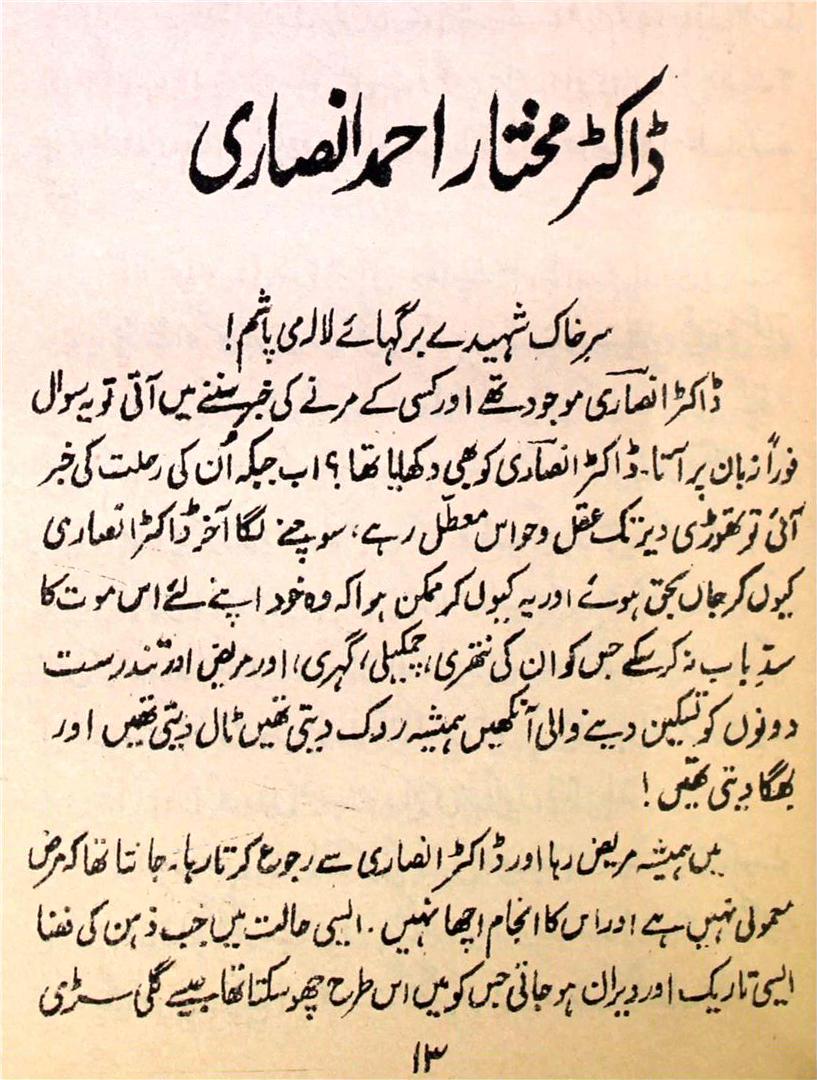 ڈاکٹر مختار احمد انصاری
سرِ خاک شہیدے برگہائے لالہ می پاشم!
ڈاکٹر انصاری موجود تھے اور کسی کے مرنے کی خبر سننے میں آتی تو یہ سوال
فوراً زبان پر آتا۔ ڈاکٹر انصاری کو بھی دکھلایا تھا؟ اب جبکہ اُن کی رحلت کی خبر
آئی تو تھوڑی دیر تک عقل و حواس معطّل رہے، سوچنے لگا آخر ڈاکٹر انصاری
کیوں کر جاں بحق ہوئے اور یہ کیوں کر ممکن ہوا کہ وہ خود اپنے لئے اس موت کا
سدِّ باب نہ کر سکے جس کو ان کی نتھری، چمکیلی، گہری، اور مریض اور تندرست
دونوں کو تسکین دینے والی آنکھیں ہمیشہ روک دیتی تھیں ٹال دیتی تھیں اور
بھگا دیتی تھیں!
میں ہمیشہ مریض رہا اور ڈاکٹر انصاری سے رجوع کرتا رہا۔ جانتا تھا کہ مرض
معمولی نہیں ہے اور اس کا انجام اچھا نہیں۔ ایسی حالت میں جب ذہن کی فضا
ایسی تاریک اور ویران ہو جاتی جس کو میں اس طرح چھو سکتا تھا جیسے گلی سڑی
۱۳